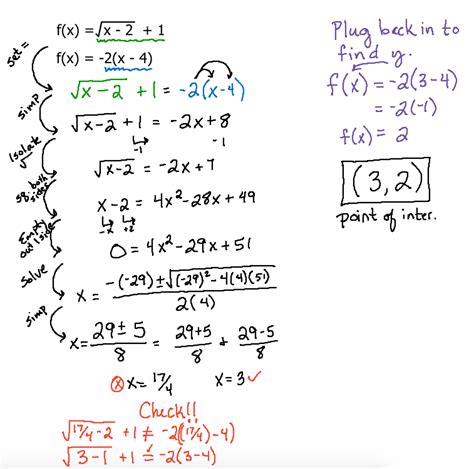 f(x) = √x - 2 + 1
f(x) = -2(x - 4)
set =
√x-2 + 1 = -2(x-4)
simp
√x-2 + 1 = -2x+8
-1 -1
Isolate √
√x-2 = -2x+7
sq. both sides
x-2 = 4x²-28x+49
-x +2
Empty out 1 side
0 = 4x²-29x+51
Solve
x = -(-29)±√(-29)²-4(4)(51) / 2(4)
simp
x = 29±5/8 = 29+5/8 + 29-5/8
ⓧ x = 17/4 x = 3 ✓
Check!!
√17/4-2 + 1 ≠ -2((17/4)-4)
√3-1 + 1 = -2(3-4) ✓
Plug back in to
find y.
f(x) = -2(3-4)
= -2(-1)
f(x) = 2
(3,2)
point of inter.